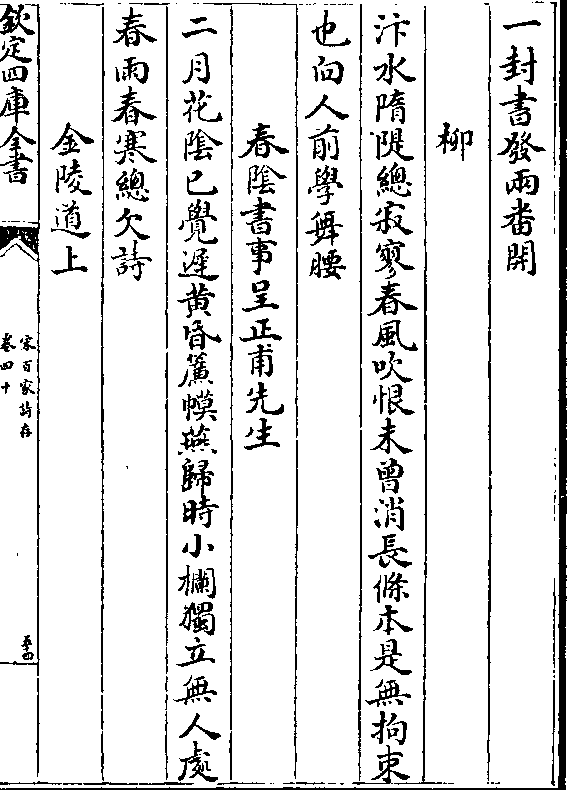 一封書發兩番開
柳
汴水隋隄總寂寥春風吹恨未曾消長條本是無拘束
也向人前學舞腰
春陰書事呈正甫先生
二月花陰已覺遲黄昏簾幙燕歸時小欄獨立無人處
春雨春寒總欠詩
金陵道上
欽定四庫全書
宋百家詩存
卷四十
五四